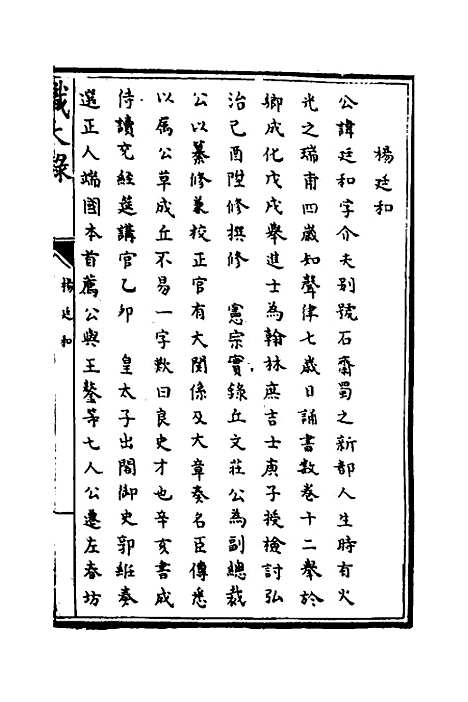 楊廷和
公諱廷和字介夫别號石齋蜀之新都人生時有火
光之瑞甫四歲知聲律七歲日誦書數卷十二舉於
鄉成化戊戌舉進士為翰林庶吉士庚子授檢討弘
治己酉陞修撰修　憲宗實錄丘文莊公為副總裁
公以纂修兼校正官有大関係及大章奏名臣傳悉
以属公草成丘不易一字歎曰良史才也辛亥書成
侍讀充經筵講官乙卯　皇太子出閣御史郭維奏
選正人端國本首薦公與王鏊等七人公遷左春坊
識大錄
楊廷和